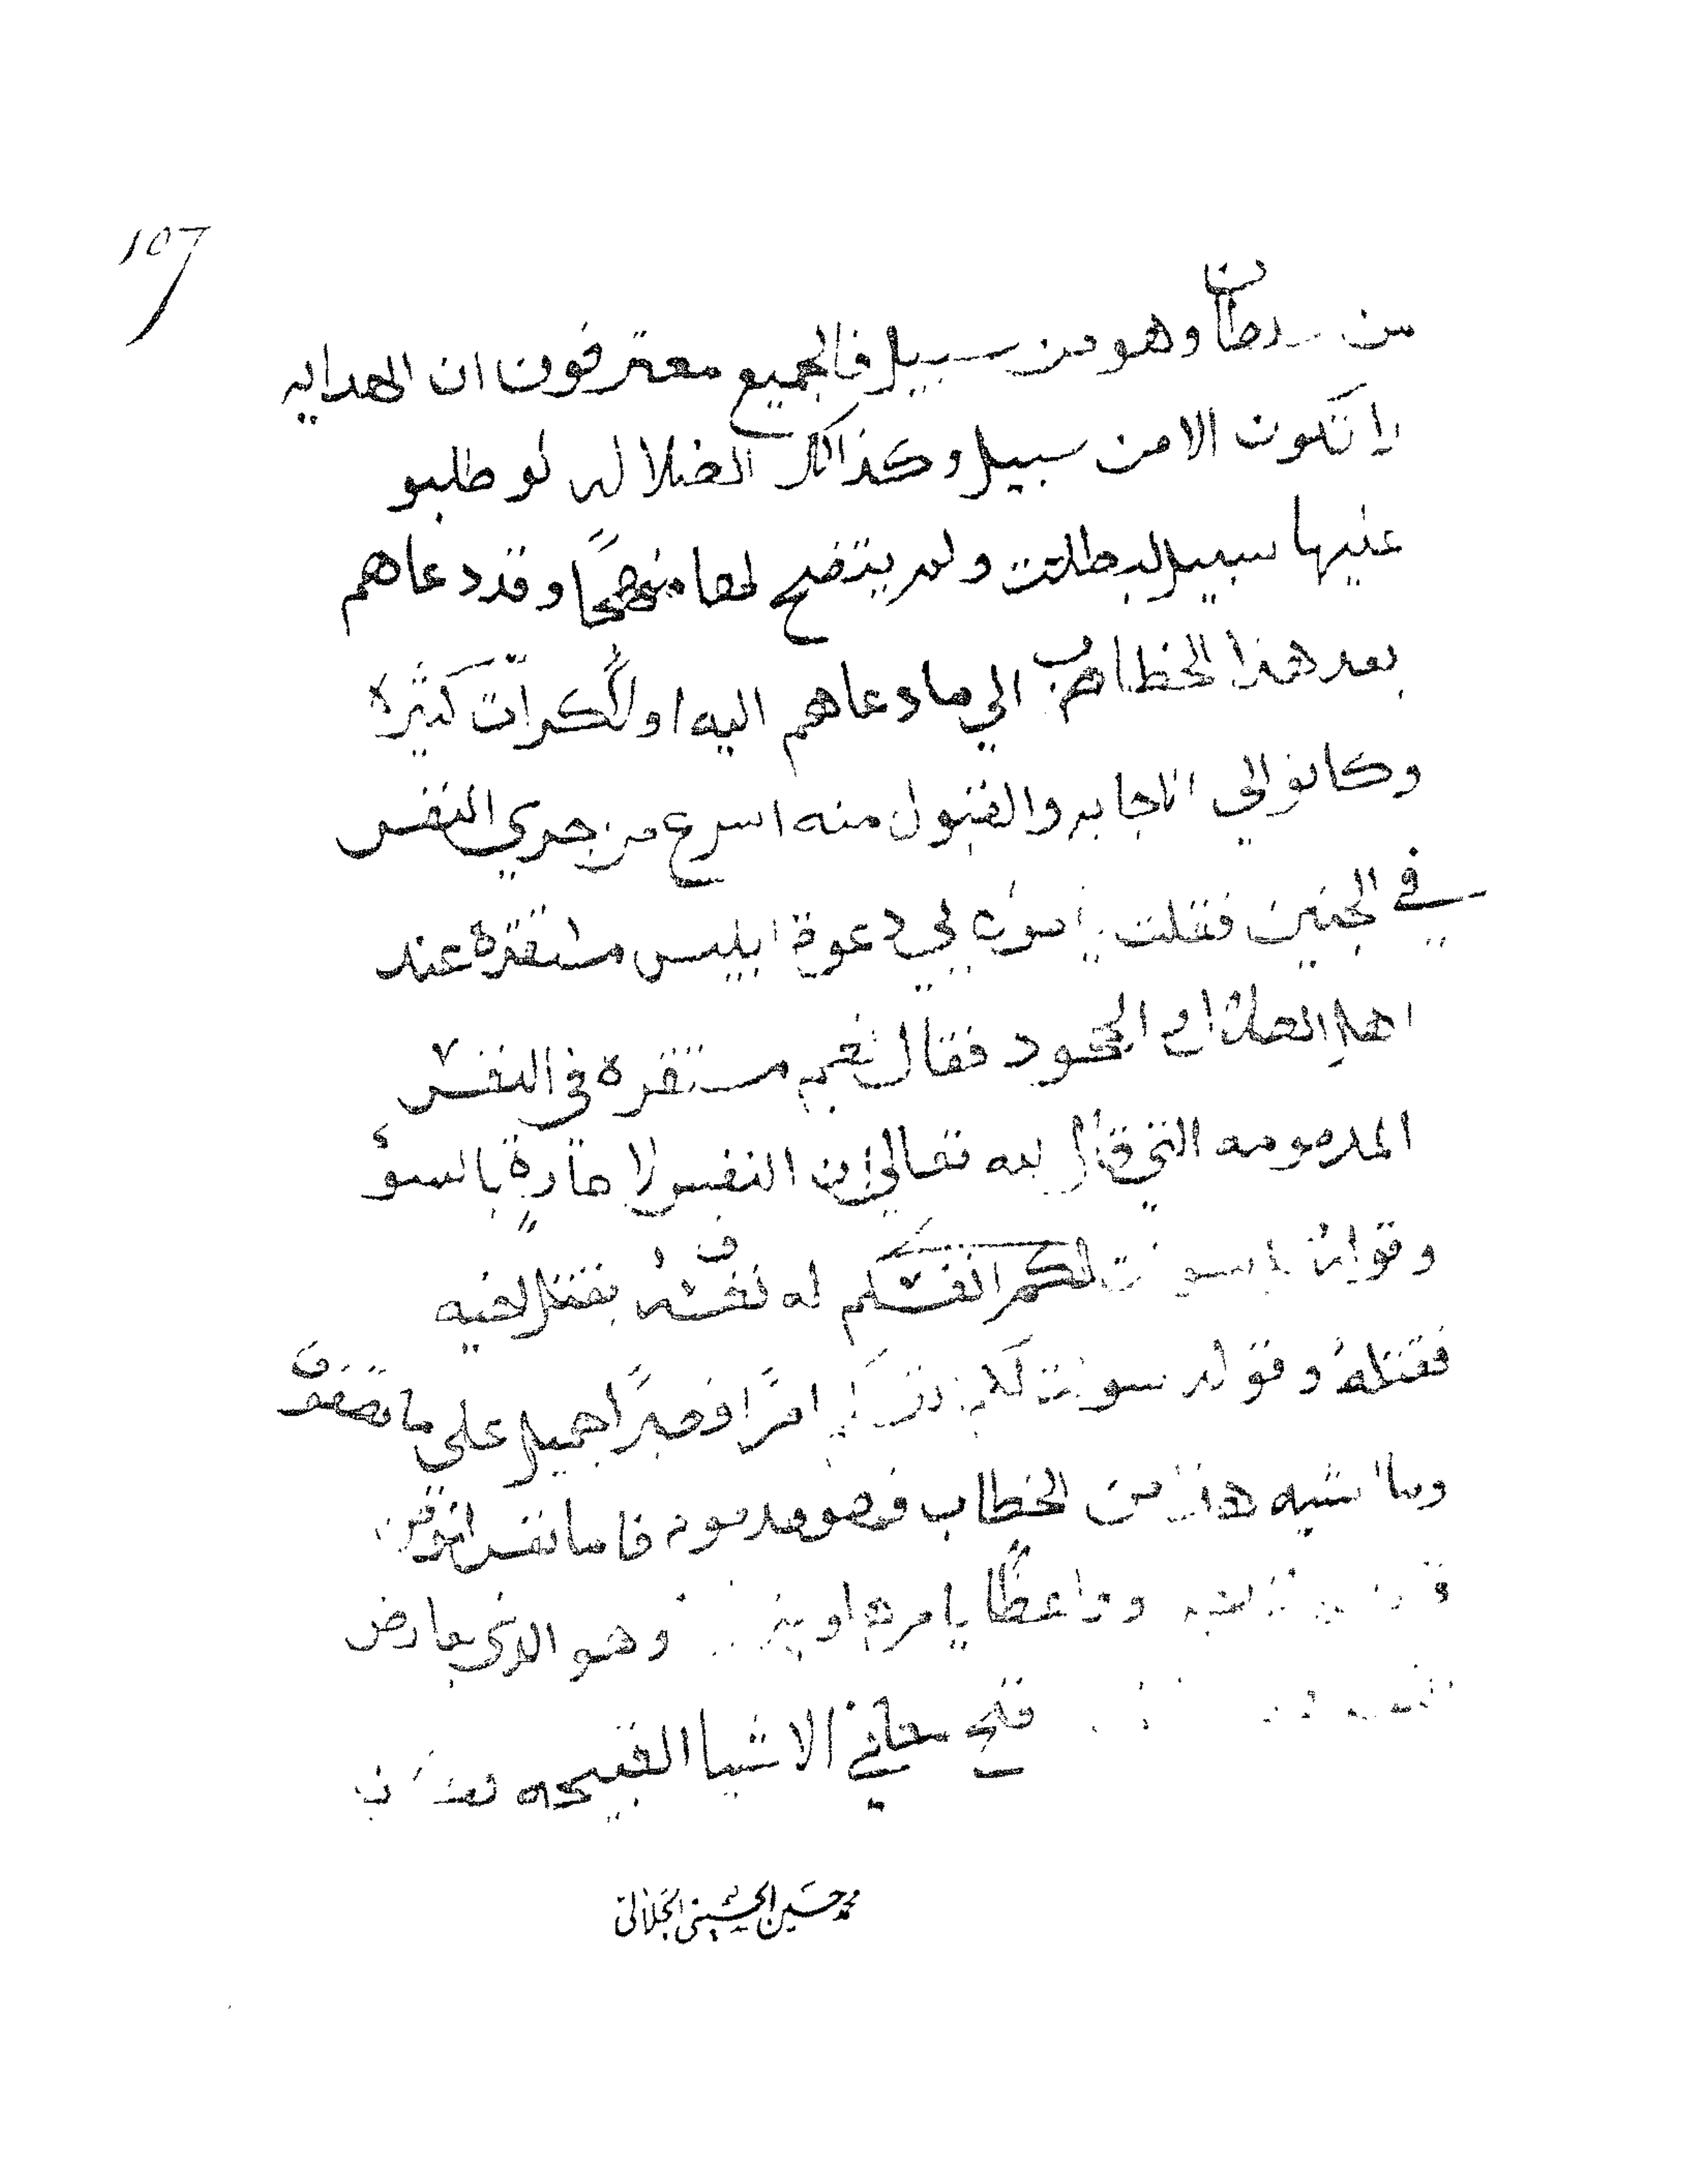 ١٥٦
من سلطان وهو من سبيل فالجميع معترفون ان الهدايه
لا تكون الا من سبيل وكذالك الضلاله لو طلبو
عليها سبيل لبطلت ولم يتضح لها منهجاً وقد دعاهم
بعد هذا الخطاب الي ما دعاهم اليه اولاً كراتٍ كثيره
وكانو الي الاجابه والقبول منه اسرع من جري النفس
في الجنين فقلت يا مولاي دعوة ابليس مستقره عند
اهل العدا والجحود فقال نعم مستقره في النفس
المذمومه التي قال الله تعالي ان النفس لامّارةٍ بالسوء
وقوله بل سولت لكم انفسكم له نفسه بقتل اخيه
فقتله وقوله سولت لكم انفسكم امرًا فصبرًا جميل على ما تصفون
وما اشبه هذا من الخطاب فهو مذموم فاما نفس المومن
وواعظًا يامرها وهو الذي يعارض
فتح معاني الاشيا القبيحه
محمد حسين الحسيني الجلالي